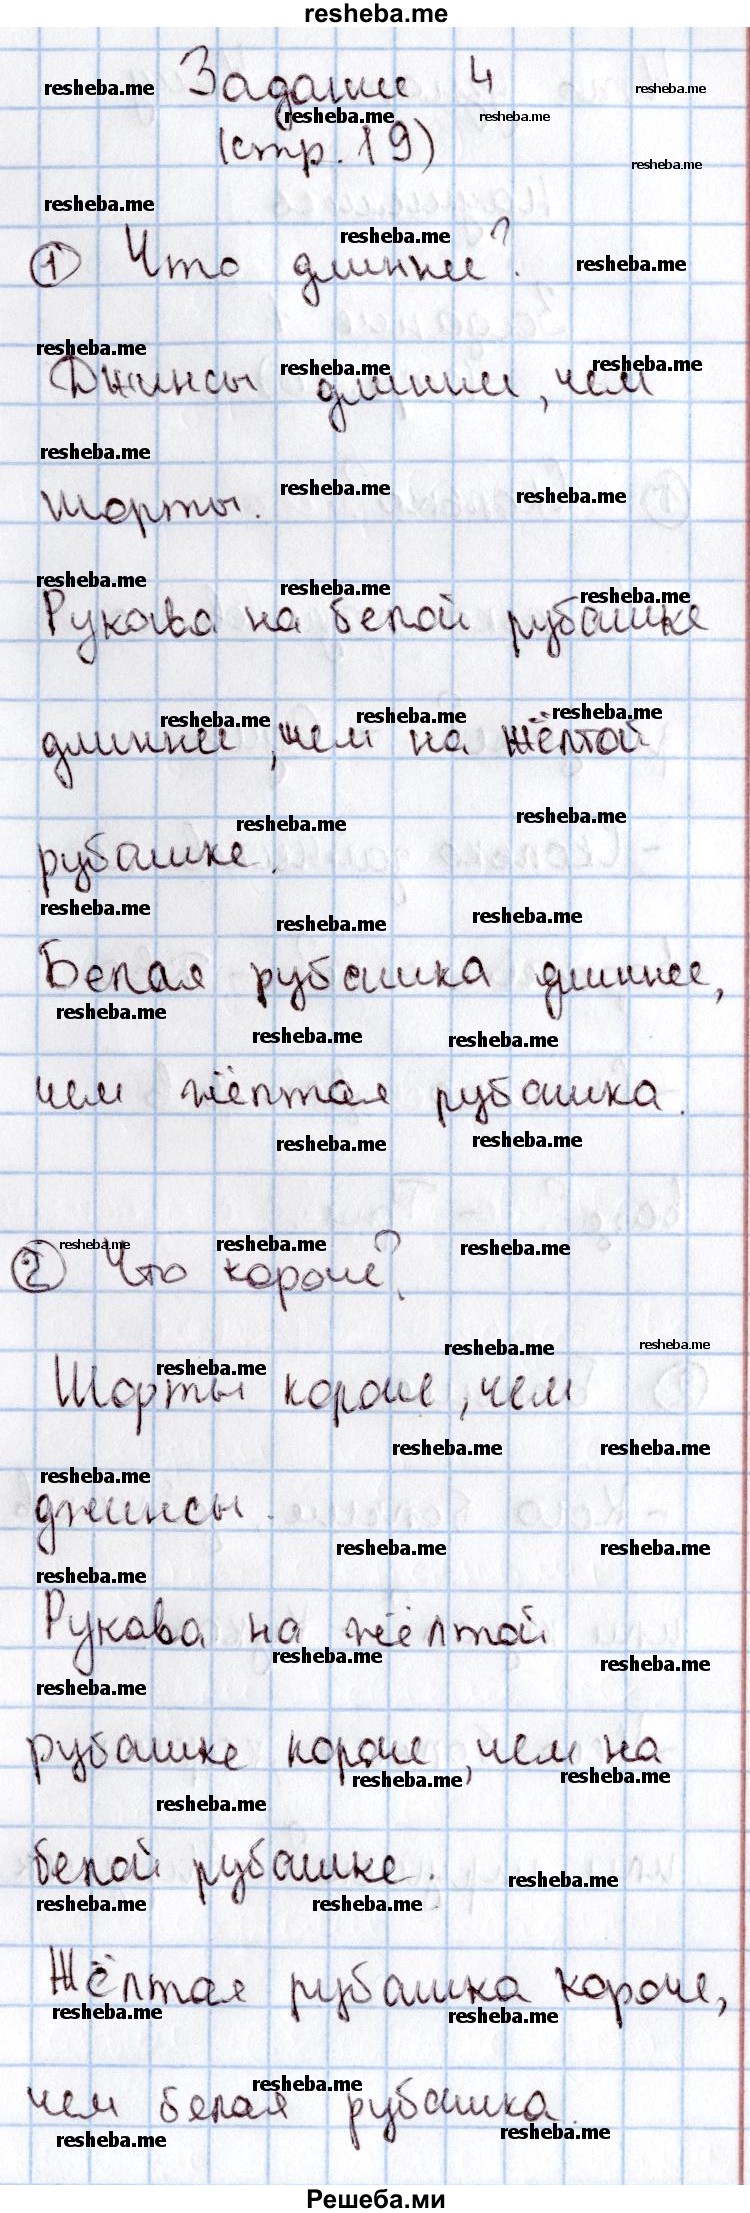 resheba.me
Задание 4
(стр. 19)
① Что длиннее?
Джинсы длиннее, чем
шорты.
Рукава на белой рубашке
длиннее, чем на жёлтой
рубашке.
Белая рубашка длиннее,
чем жёлтая рубашка.
② Что короче?
Шорты короче, чем
джинсы.
Рукава на жёлтой
рубашке короче, чем на
белой рубашке.
Жёлтая рубашка короче,
чем белая рубашка.
Решеба.ми